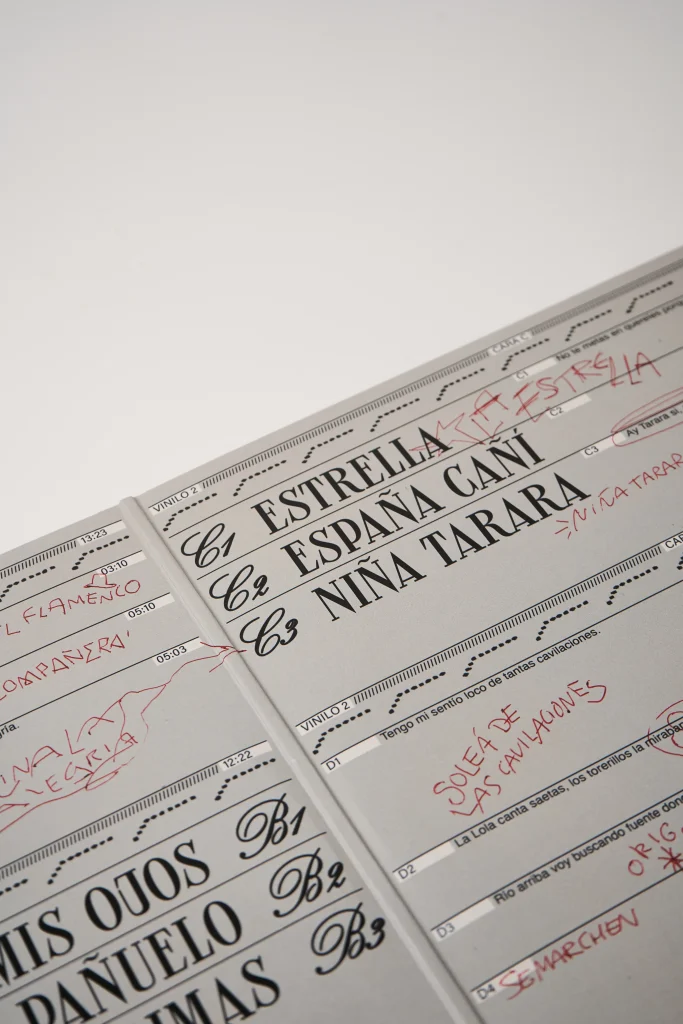 13:23
03:10
L FLAMENCO
05:10
OMPAÑERA'
05:03
gría.
12:22
MIS OJOS B1
PAÑUELO B2
IMAS B3
VINILO 2 CARA C
C1 No te metas en quereles porq
ESTRELLA
C1 ESTRELLA
C2
C2 ESPAÑA CAÑÍ
C3 Ay Tarara sí,
NIÑA TARARA
C3 NIÑA TARARA
VINILO 2 CAR
D1 Tengo mi sentío loco de tantas cavilaciones.
SOLEÁ DE
LAS CAVILACIONES
D2 La Lola canta saetas, los torerillos la miraba
D3 Río arriba voy buscando fuente don
ORIG.
D4 SE MARCHEN